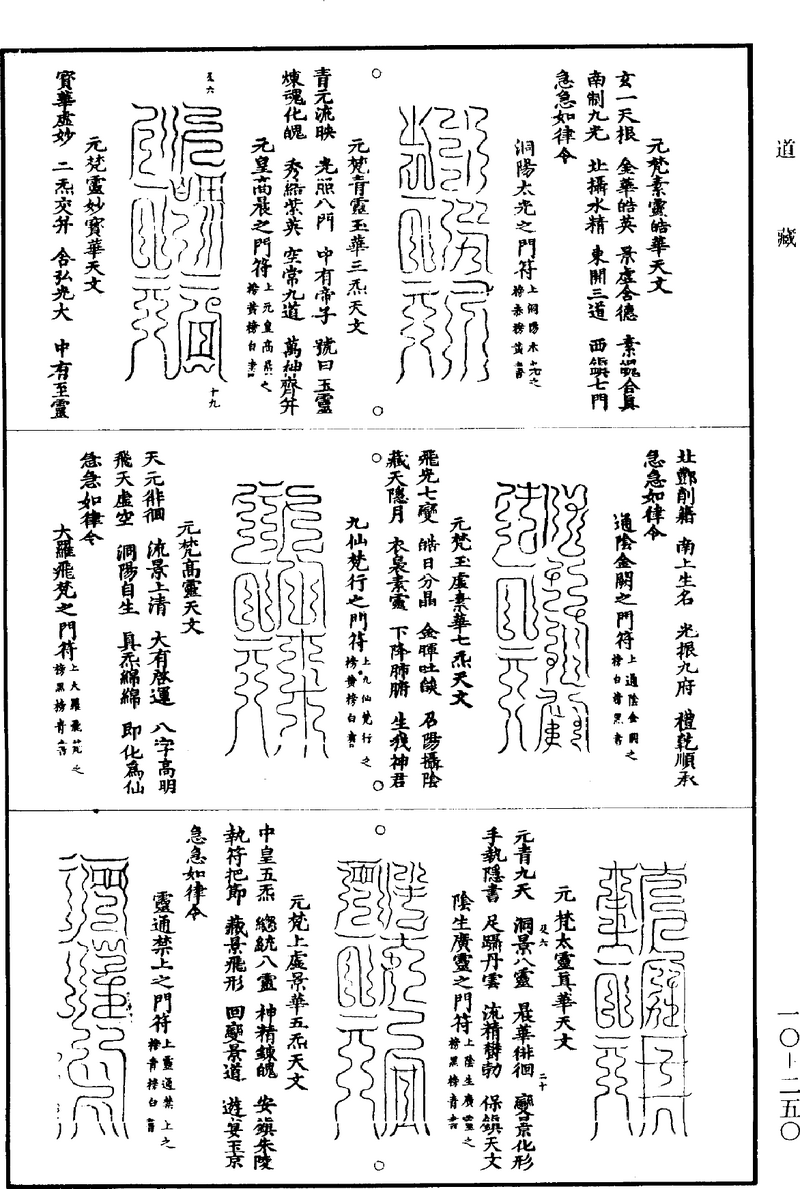 道藏
元梵素靈皓華天文
玄一天根 金華皓英 景虛含德 素靈合真
南制九光 北攝水精 東開三道 西鎮七門
急急如律令
洞陽太光之門符上洞陽太光之
榜赤榜黃書
元梵青靈玉華三炁天文
青元流映 光照八門 中有帝子 號曰玉靈
煉魂化魄 秀緒紫英 空常九道 萬仙齊昇
元皇高晨之門符上元皇高晨之
榜黃榜白書
及六
十九
元梵靈妙寶華天文
寶華虛妙 二炁交并 含弘光大 中有至靈
北酆削籍 南上生名 光振九府 禮乾順承
急急如律令
通陰金闕之門符上通陰金闕之
榜白榜黑書
元梵玉虛素華七炁天文
飛光七變 皓日分晶 金暉吐燄 召陽攝陰
藏天隱月 衣裊素靈 下降肺腑 生我神君
九仙梵行之門符上九仙梵行之
榜黃榜白書
元梵高靈天文
天元徘徊 流景上清 大有啓運 八字高明
飛天虛空 洞陽自生 真炁綿綿 即化為仙
急急如律令
大羅飛梵之門符上大羅飛梵之
榜黑榜青書
元梵太靈真華天文
元青九天 洞景八靈 晨華徘徊 變景化形
手執隱書 足躡丹雲 流精鬱勃 保鎮天文
及六
二十
陰生廣靈之門符上陰生廣靈之
榜黑榜青書
元梵上虛景華五炁天文
中皇五炁 總統八靈 神精鍊魄 安鎮朱陵
執符把節 藏景飛形 回變景道 遊宴玉京
急急如律令
靈通禁上之門符上靈通禁上之
榜青榜白書
一〇-二五〇